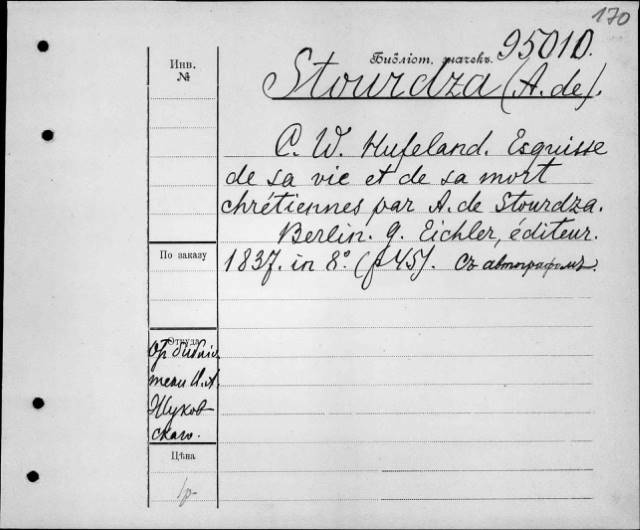 170
Инв.
№
Библіот. значекъ.
95010.
Stourdza (A. de).
C. W. Hufeland. Esquisse
de sa vie et de sa mort
chrétiennes par A. de Stourdza.
Berlin. G. Eichler, éditeur.
По заказу
1837. in 8º. (p 45). Съ автографомъ.
Откуда
библіо
теки
Жуков
скаго.
Цѣна